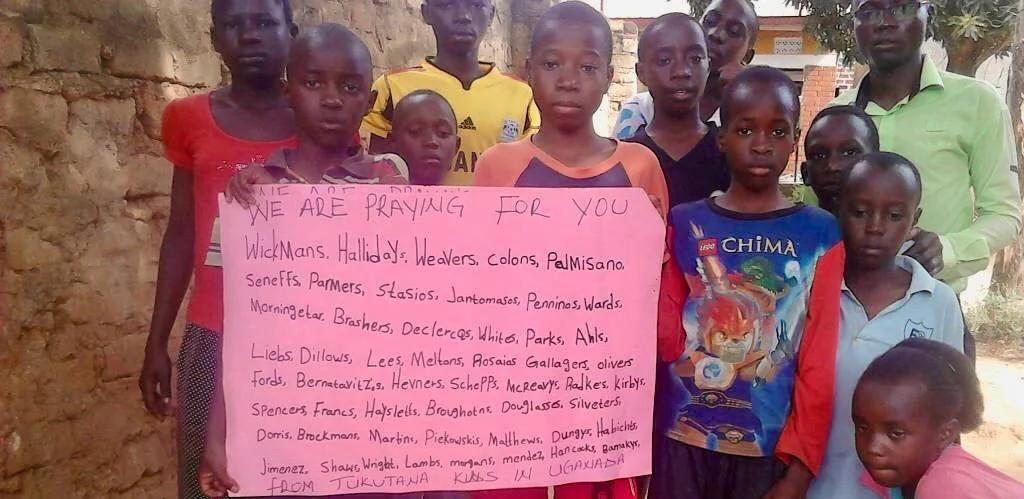 WE ARE PRAYING FOR YOU
WickMans, Hallidays, Weavers, colons, Palmisano,
Seneffs, Parmers, Stasios, Jantomasos, Penninos, Wards,
Morningstar, Brashers, Declercqs, Whites, Parks, Ahls,
Liebs, Dillows, Lees, Meltons, Rosaios Gallagers, olivers
fords, Bernatavitzs, Hevners, Schepps, McReavys, Radkes, Kirbys,
Spencers, Francs, Haysletts, Broughotns, Douglasses, Silveters,
Dorris, Brockmans, Martins, Piekowskis, Matthews, Dungys, Habichts,
Jimenez, Shaws, Wright, Lambs, morgans, mendez, Hancocks, Bamakys,
FROM TUKUTANA KIDS IN UGANADA
LEGO CHiMA
adidas